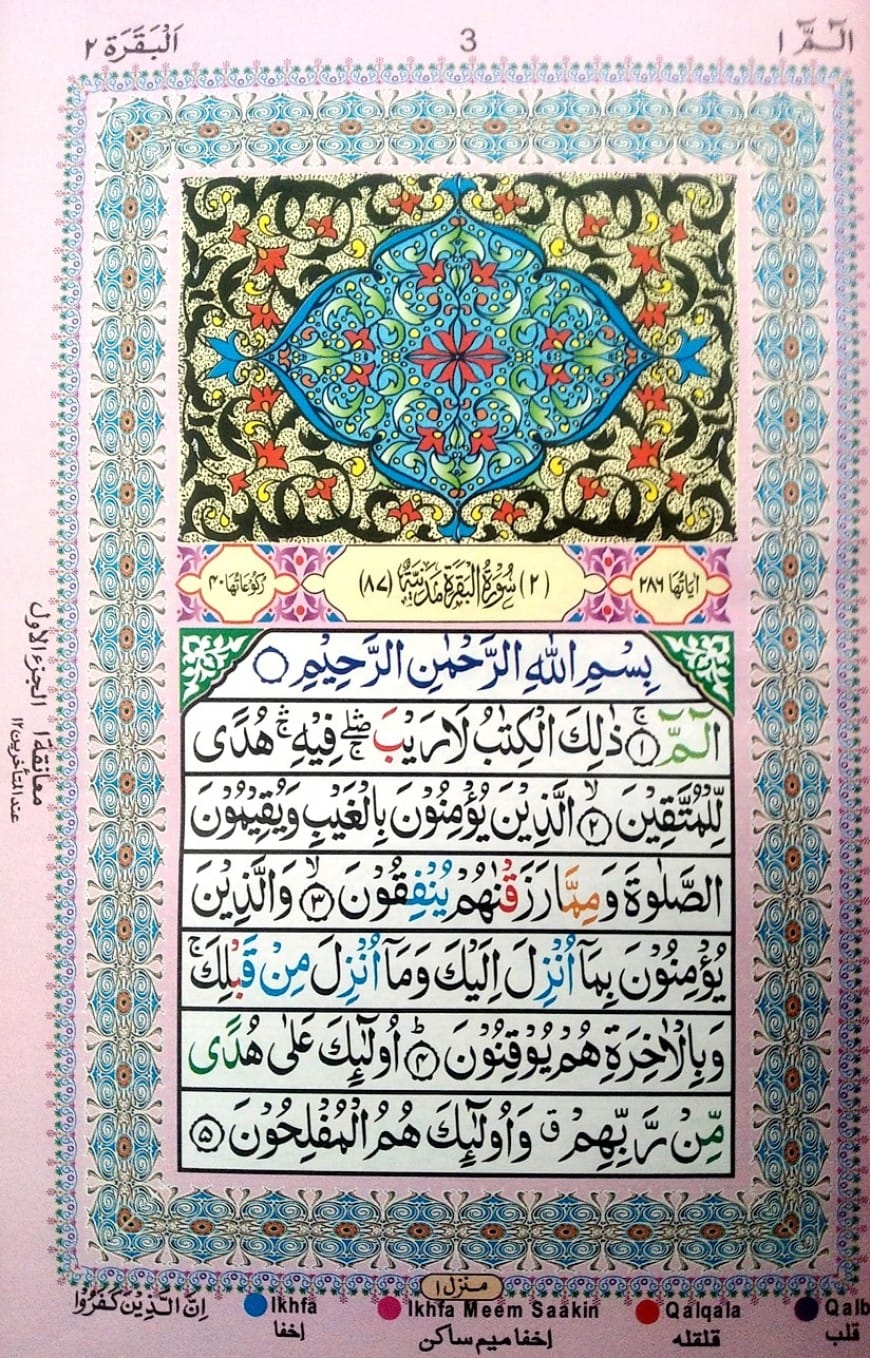 الٓمّٓ ١
3
اَلْبَقَرَة ٢
اٰيَاتُهَا ٢٨٦
(٢) سُوْرَةُ الْبَقَرَةِ مَدَنِيَّةٌ (٨٧)
رُكُوْعَاتُهَا ٤٠
بِسْمِ اللّٰهِ الرَّحْمٰنِ الرَّحِيْمِ ۝
الٓمّٓ ۚ ۝١ ذٰلِكَ الْكِتٰبُ لَا رَيْبَ ۛۖۚ فِيْهِ ۛۚ هُدًى
لِّلْمُتَّقِيْنَ ۙ ۝٢ الَّذِيْنَ يُؤْمِنُوْنَ بِالْغَيْبِ وَيُقِيْمُوْنَ
الصَّلٰوةَ وَمِمَّا رَزَقْنٰهُمْ يُنْفِقُوْنَ ۙ ۝٣ وَالَّذِيْنَ
يُؤْمِنُوْنَ بِمَآ اُنْزِلَ اِلَيْكَ وَمَآ اُنْزِلَ مِنْ قَبْلِكَ ۚ
وَبِالْاٰخِرَةِ هُمْ يُوْقِنُوْنَ ؕ ۝٤ اُولٰٓئِكَ عَلٰى هُدًى
مِّنْ رَّبِّهِمْ ق وَاُولٰٓئِكَ هُمُ الْمُفْلِحُوْنَ ۝٥
معانقة ١ الجزء الاول
عند المتأخرين ١٢
منزل ١
اِنَّ الَّذِيْنَ كَفَرُوْا
Ikhfa
Ikhfa Meem Saakin
Qalqala
Qalb
إخفا
إخفا ميم ساكن
قلقله
قلب